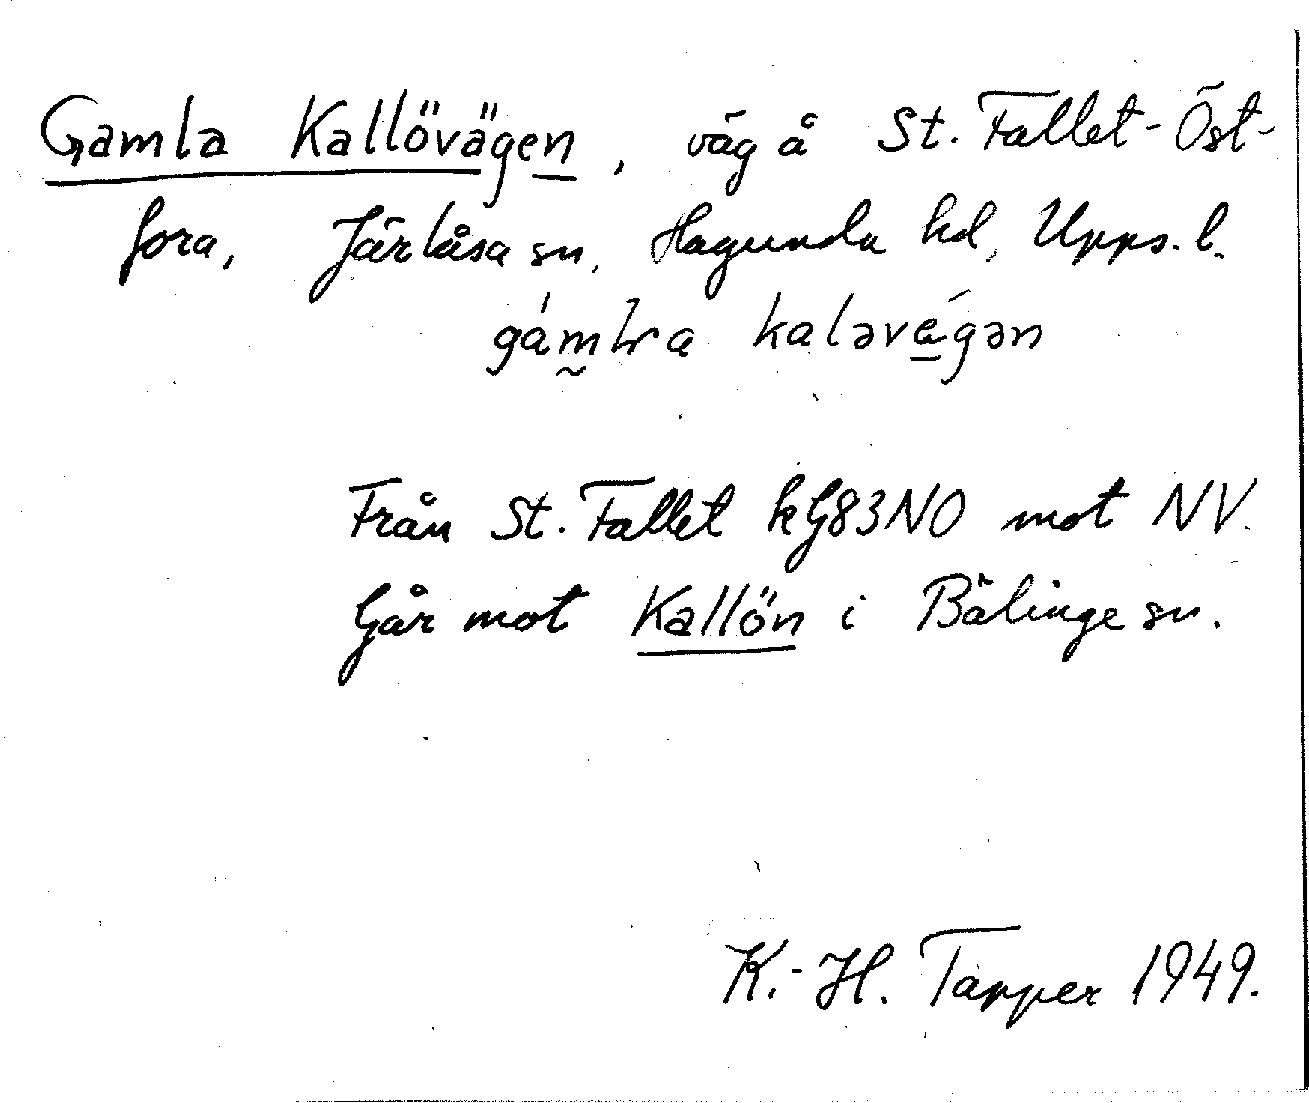 Gamla Kallövägen, väg å St. Fallet-Öst-
fora, Järlåsa sn, Hagunda hd, Upps. l.
kaləvǽgən
Från St. Fallet kG83NO mot NV.
Går mot Kallön i Bälinge sn.
K.-H. Tapper 1949.